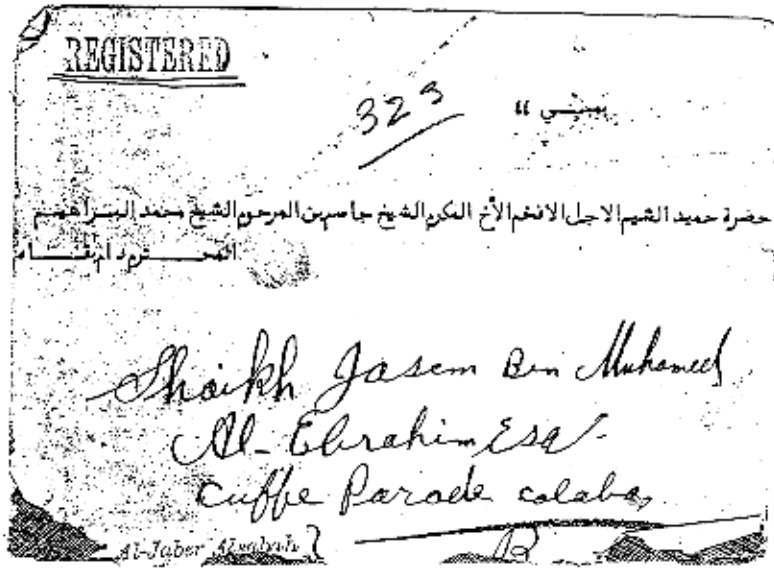 REGISTERED
323
بمبئي "
حضرة حميد الشيم الاجل الافخم الأخ المكرم الشيخ جاسم بن المرحوم الشيخ محمد البراهيم
المحترم دام بقاه
Shaikh Jasem Ben Muhamed
Al-Ebrahim Esq.
Cuffe Parade colaba,
Al-Jaber
B